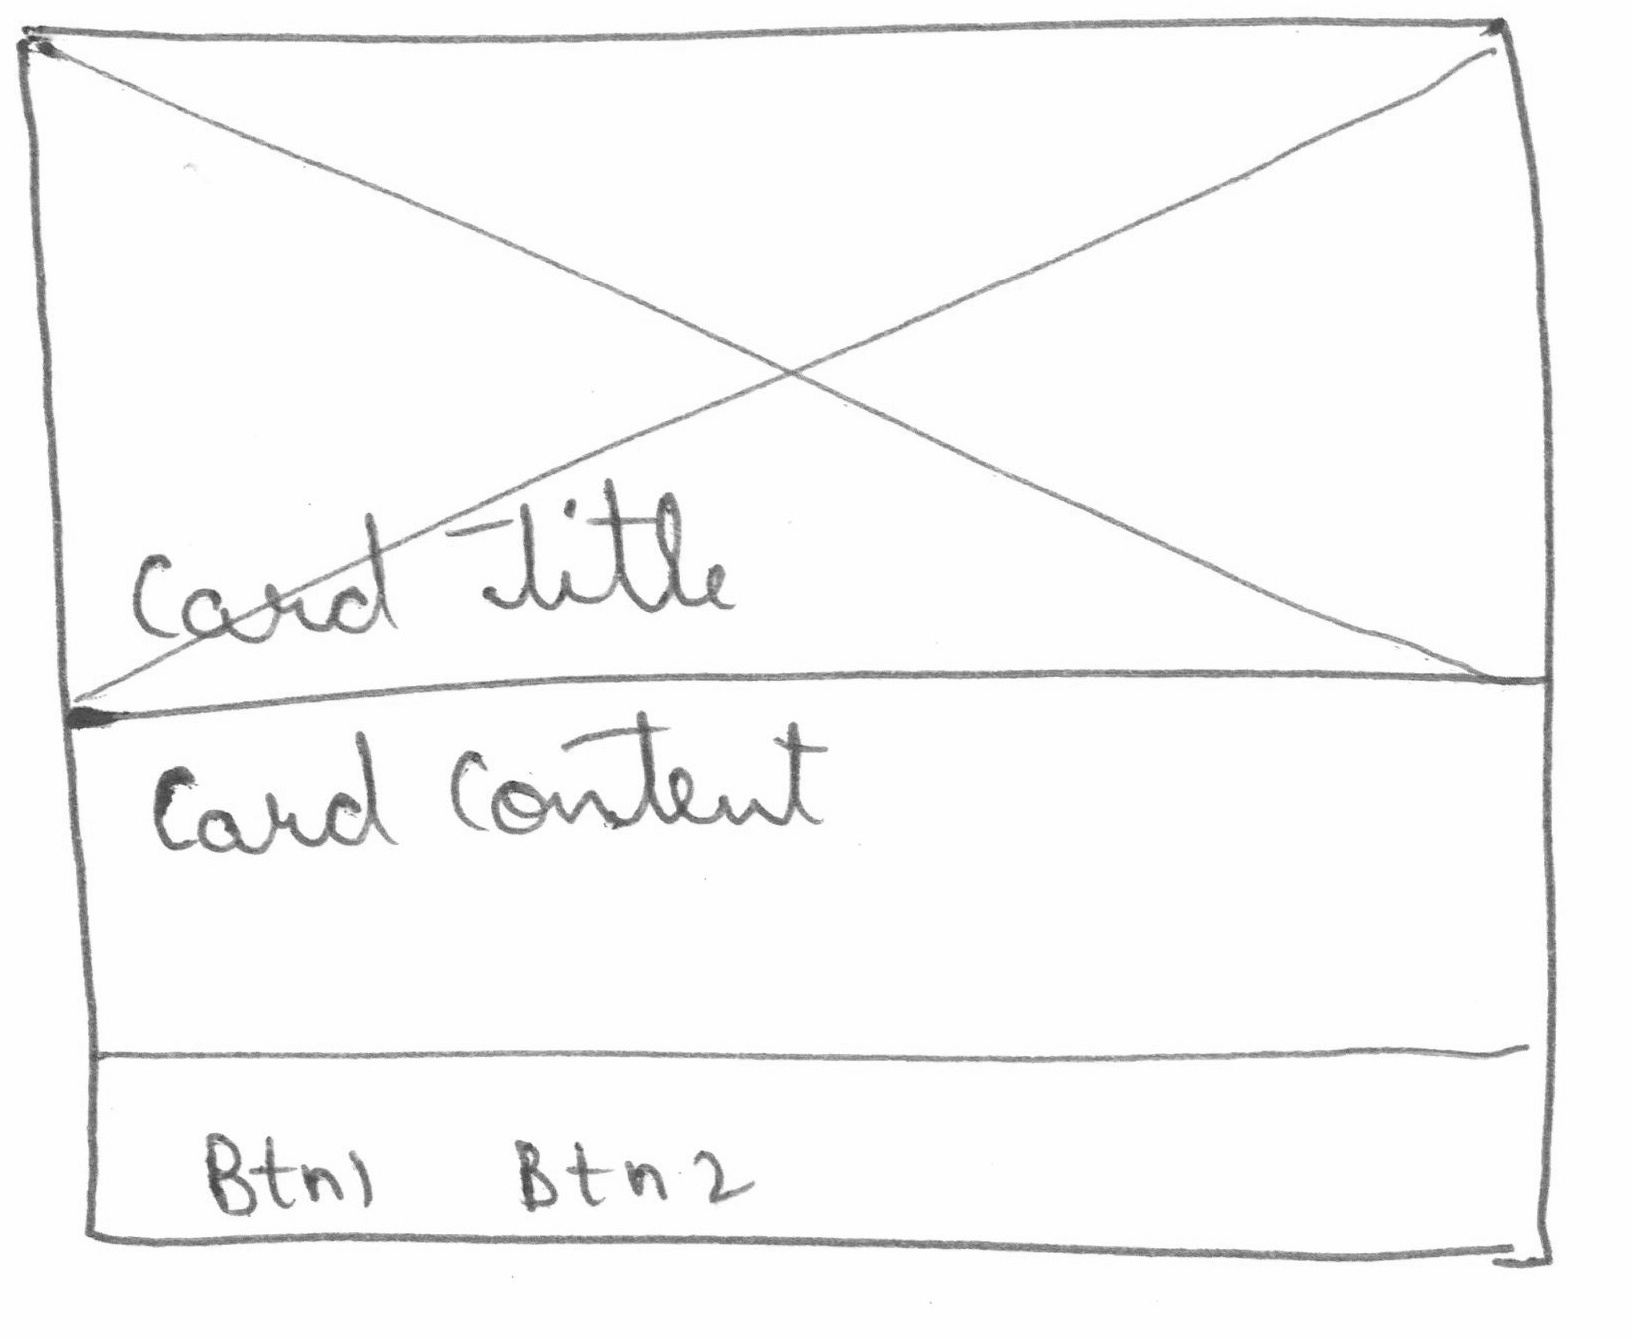 Card Title
Card Content
Btn1 Btn 2